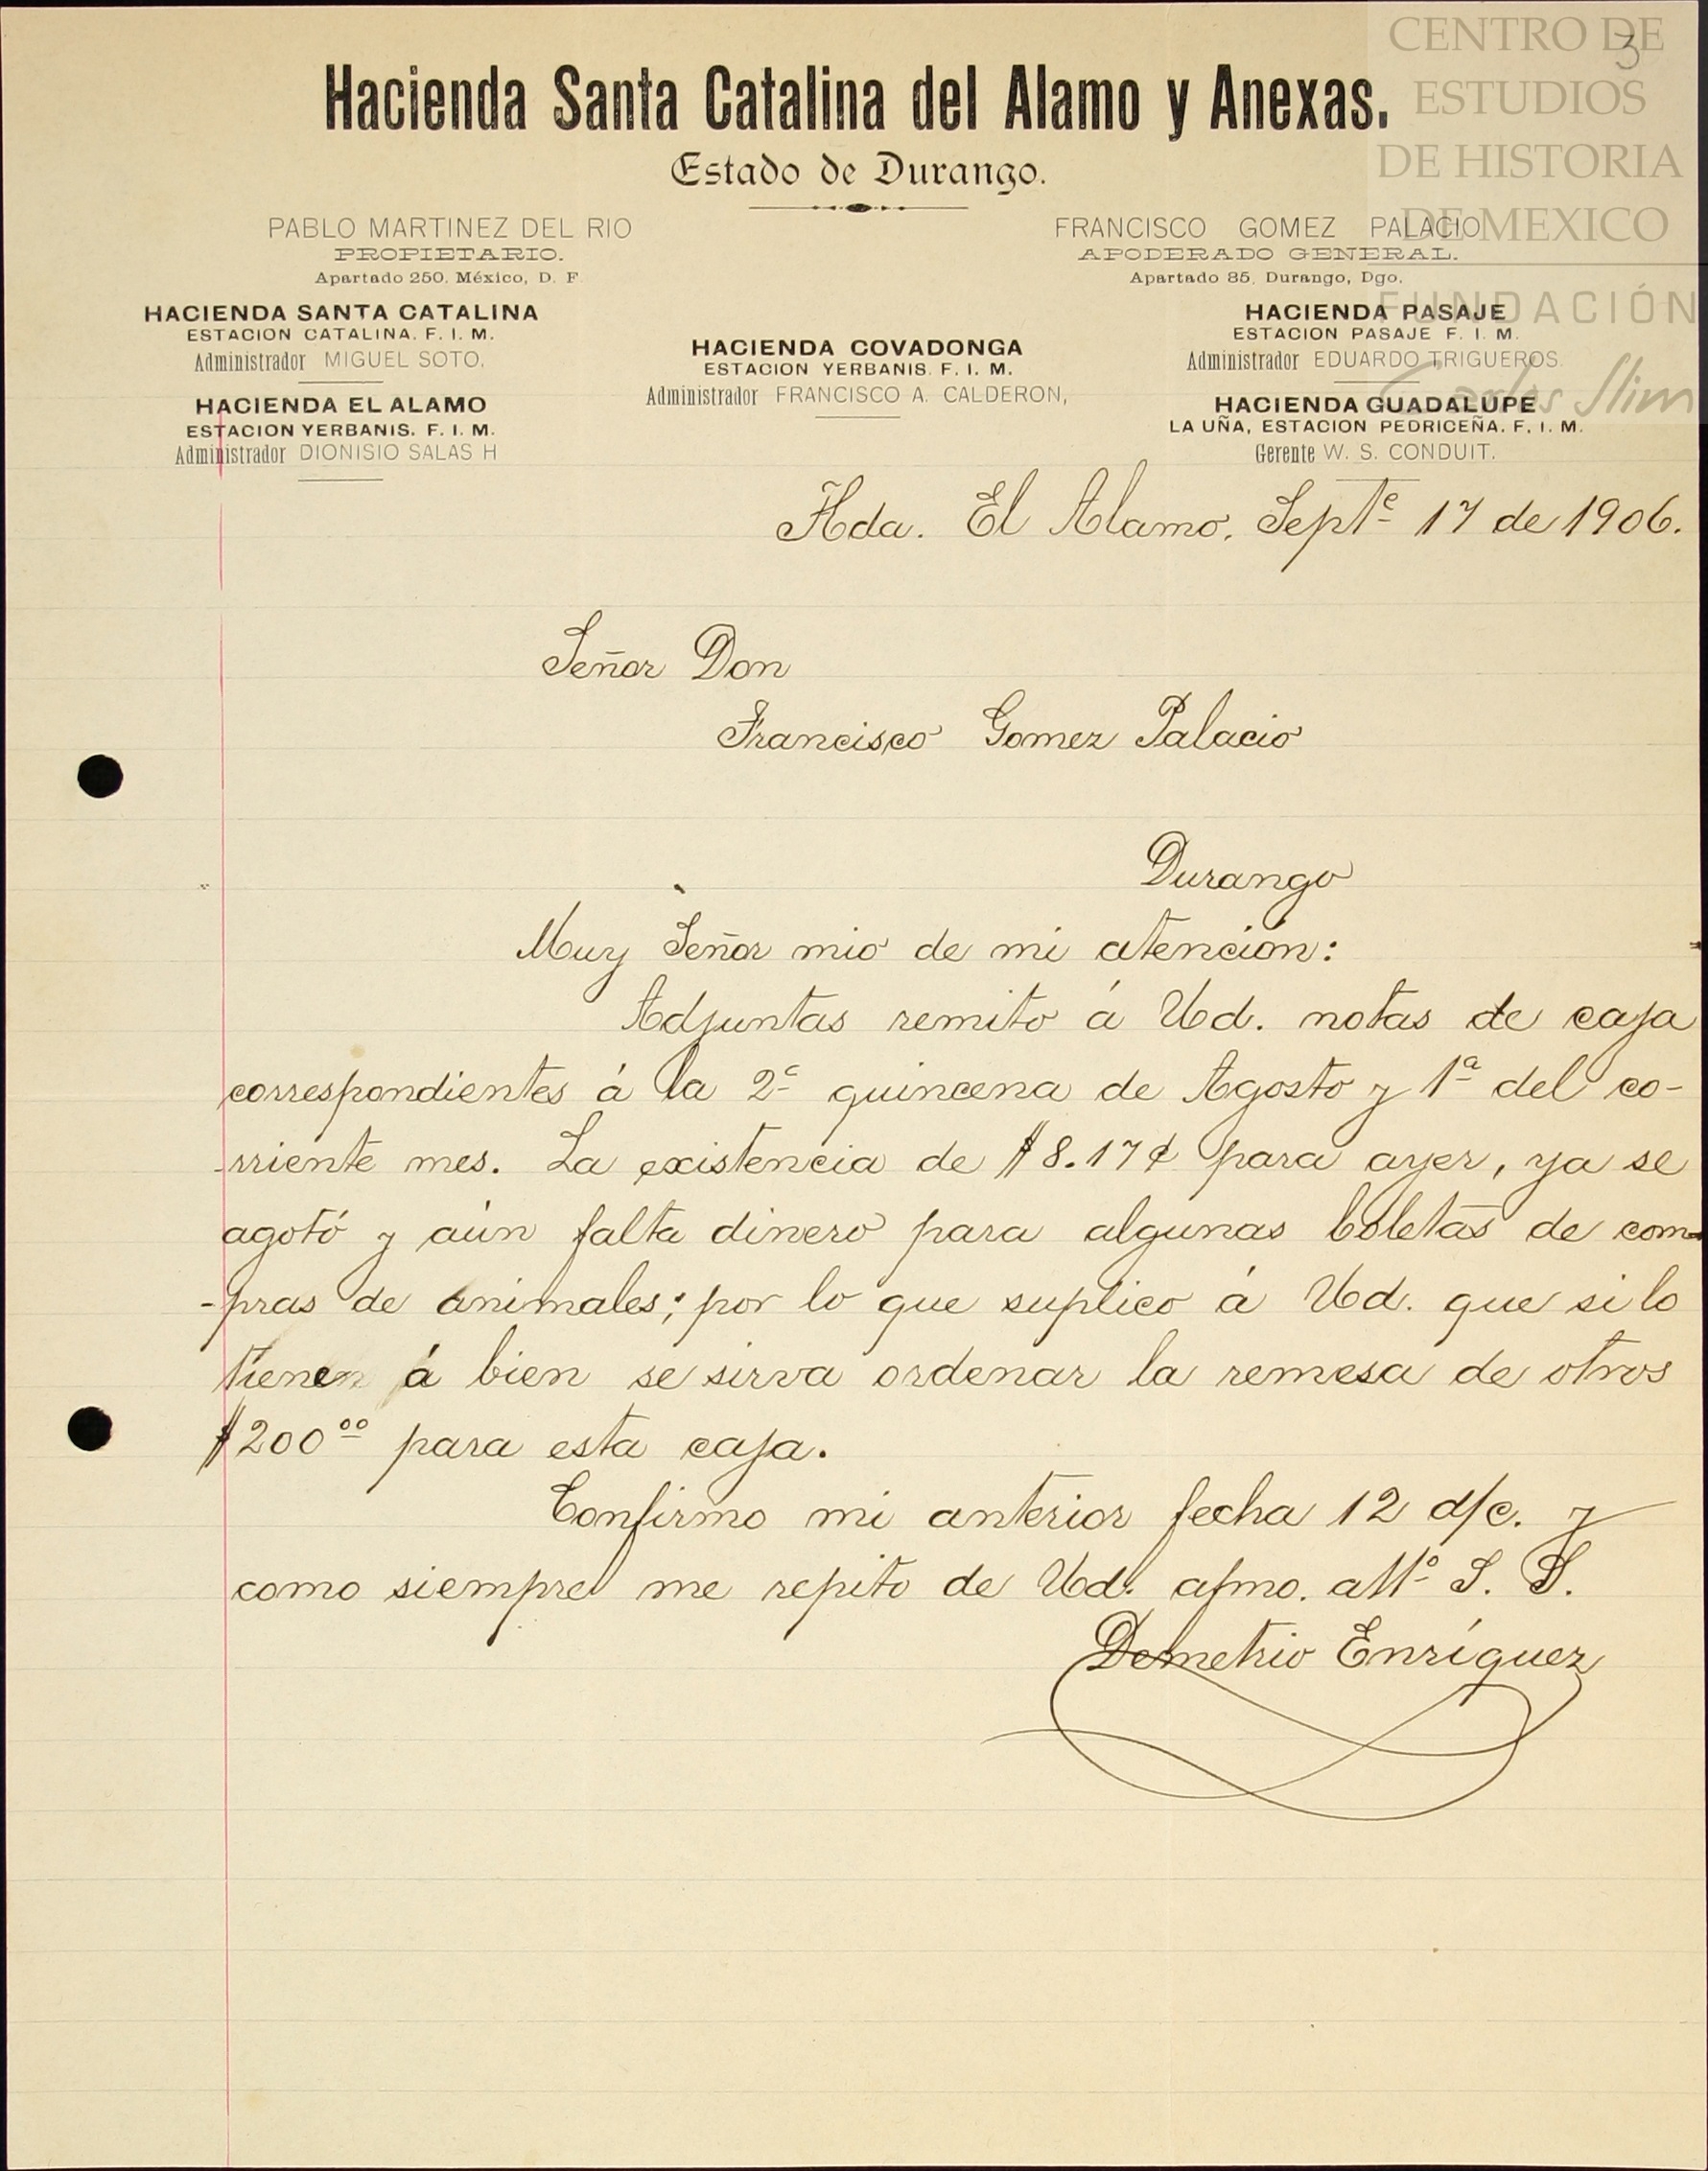 CENTRO DE
3
ESTUDIOS
DE HISTORIA
DE MEXICO
FUNDACIÓN
Carlos Slim
Hacienda Santa Catalina del Alamo y Anexas.
Estado de Durango.
PABLO MARTINEZ DEL RIO
PROPIETARIO.
Apartado 250, México, D. F.
FRANCISCO GOMEZ PALACIO
APODERADO GENERAL.
Apartado 85, Durango, Dgo.
HACIENDA SANTA CATALINA
ESTACION CATALINA. F. I. M.
Administrador MIGUEL SOTO.
HACIENDA EL ALAMO
ESTACION YERBANIS. F. I. M.
Administrador DIONISIO SALAS H
HACIENDA COVADONGA
ESTACION YERBANIS. F. I. M.
Administrador FRANCISCO A. CALDERON,
HACIENDA PASAJE
ESTACION PASAJE F. I. M.
Administrador EDUARDO TRIGUEROS.
HACIENDA GUADALUPE
LA UÑA, ESTACION PEDRICEÑA. F. I. M.
Gerente W. S. CONDUIT.
Hda. El Alamo, Septe 17 de 1906.
Señor Don
Francisco Gomez Palacio
Durango
Muy Señor mio de mi atención:
Adjuntas remito á Ud. notas de caja
correspondientes á la 2a quincena de Agosto y 1a del co-
-rriente mes. La existencia de $8.17¢ para ayer, ya se
agotó y aún falta dinero para algunas boletas de com-
-pras de animales; por lo que suplico á Ud. que si lo
tienen á bien se sirva ordenar la remesa de otros
$200.00 para esta caja.
Confirmo mi anterior fecha 12 d/c. y
como siempre me repito de Ud. afmo. atto. S. S.
Demetrio Enríquez